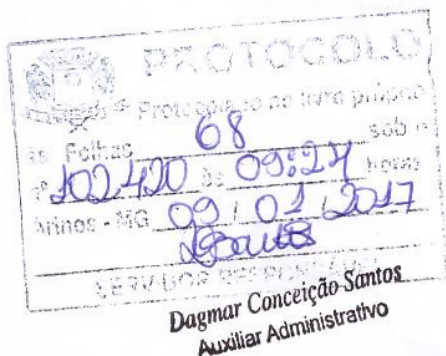 PROTOCOLO
Protocolado no livro próprio
as Folhas 68 sob o
nº 102.420 as 09:27 horas
Arinos - MG 09 / 01 / 2017
SERVIDOR RESPONSÁVEL
Dagmar Conceição Santos
Auxiliar Administrativo